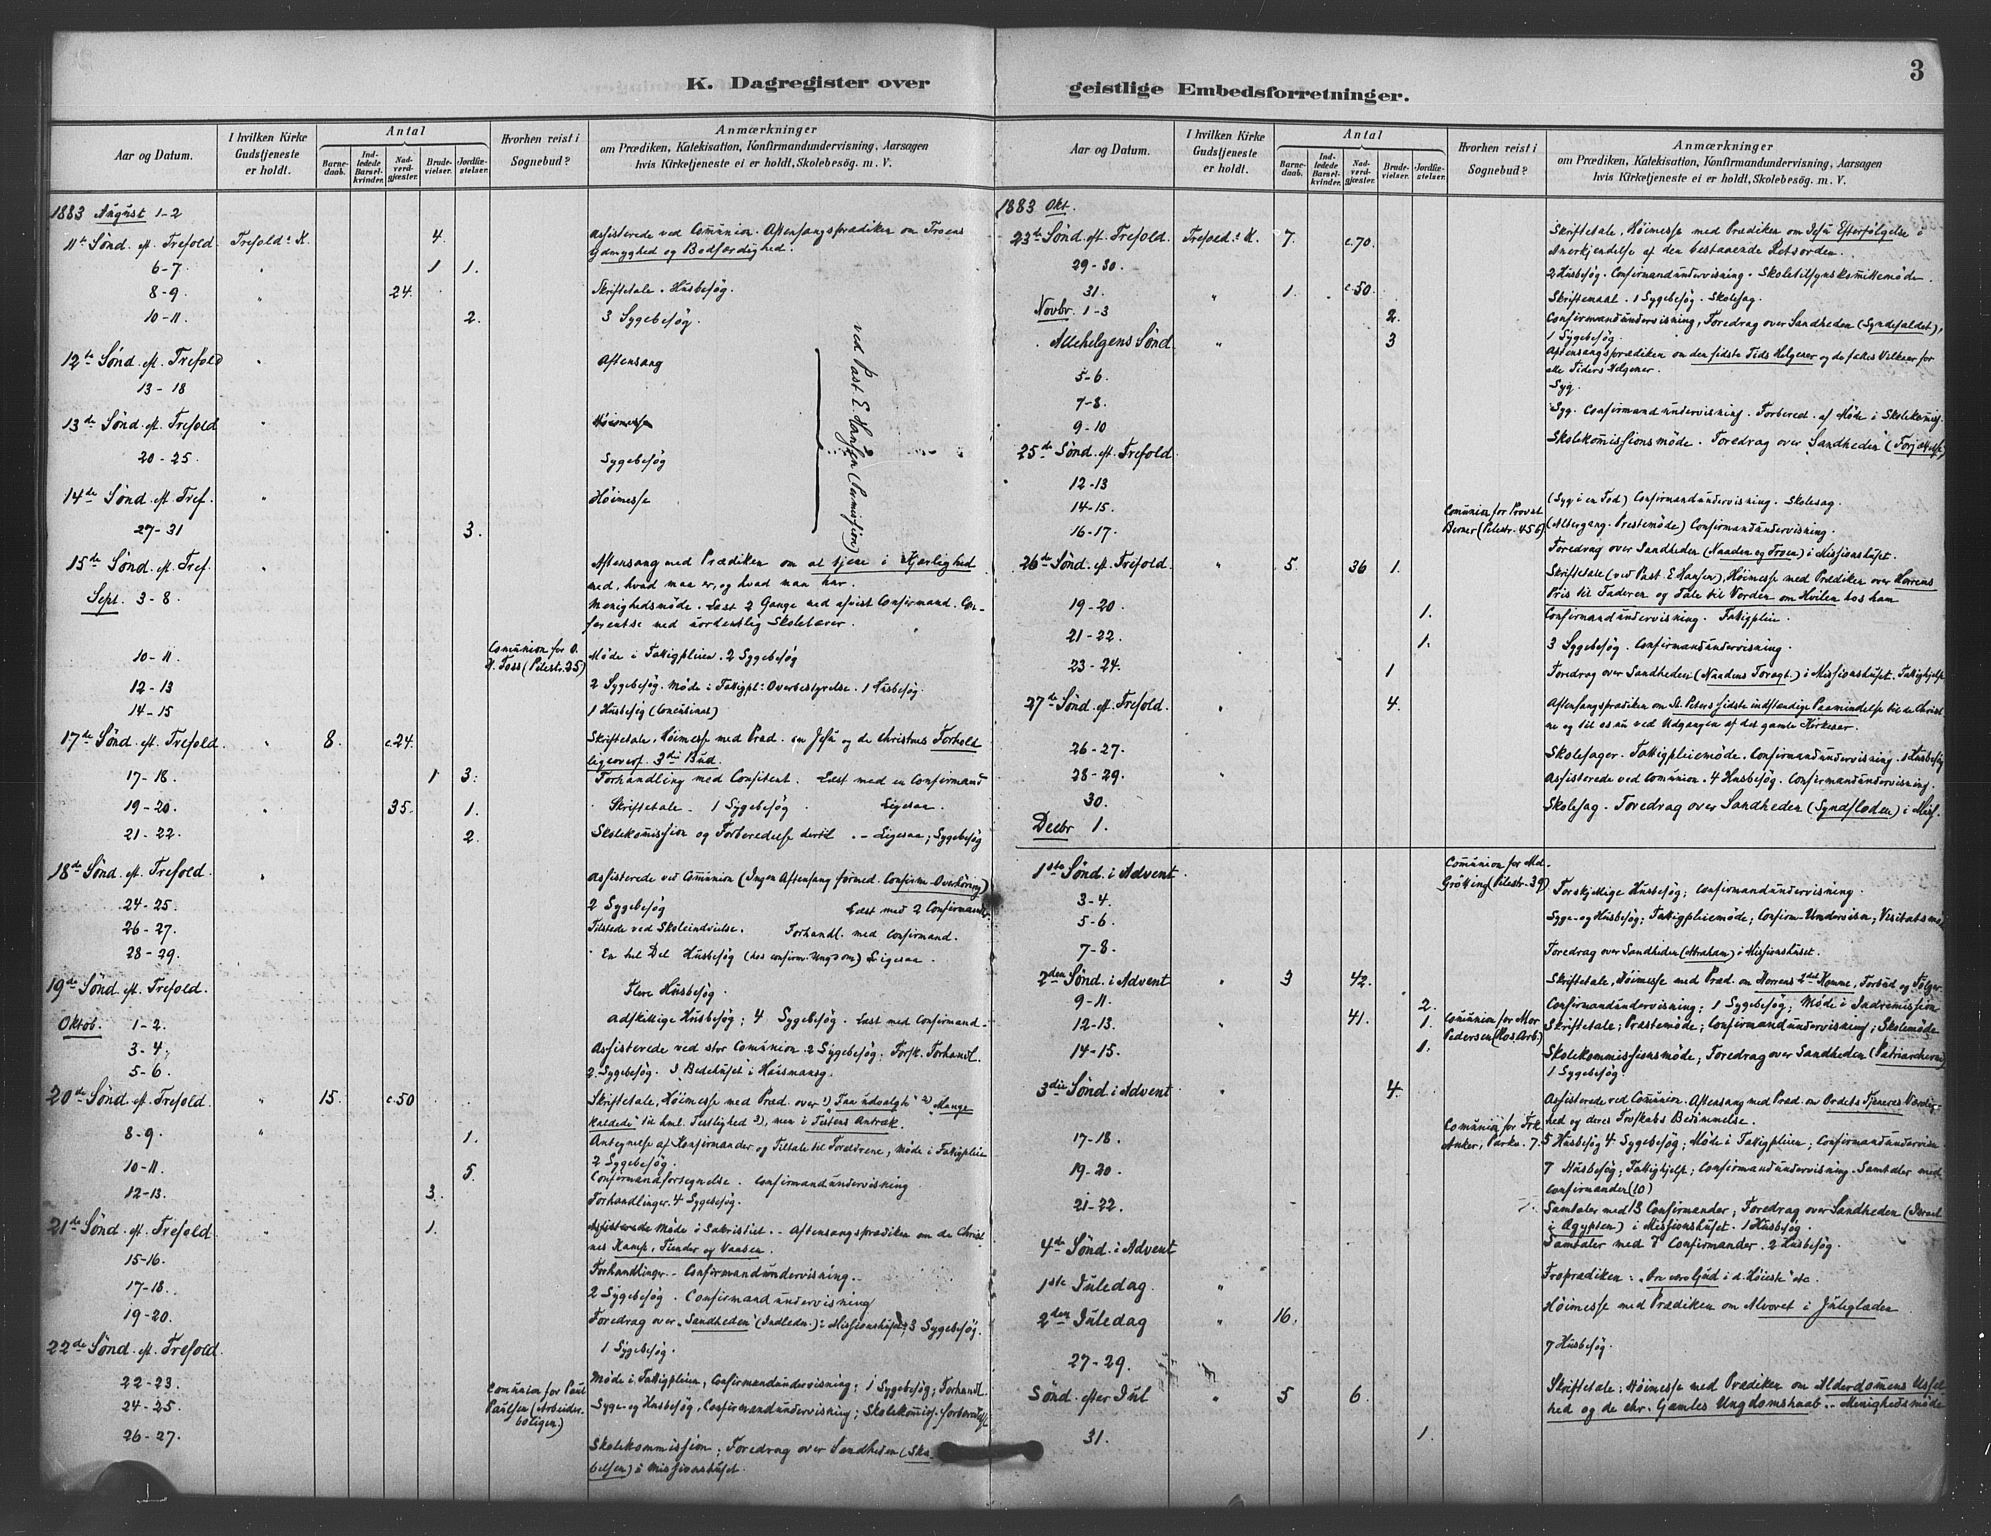 K. Dagregister over geistlige Embedsforretninger.
3
Aar og Datum.
I hvilken Kirke Gudstjeneste er holdt.
Antal
Barnedaab.
Indledede Barselkvinder.
Nadverdgjæster.
Brudevielser.
Jordfæstelser.
Hvorhen reist i Sognebud?
Anmærkninger
om Prædiken, Katekisation, Konfirmandundervisning, Aarsagen
hvis Kirketjeneste ei er holdt, Skolebesøg. m. V.
1883 August 1-2
11te Sønd. eft. Trefold. Trefold.s K. 4. Assisterede ved Communion. Aftensangsprædiken om Troens
Ydmyghed og Bodfærdighed.
6-7 1 1.
8-9 24. Skriftetale. Husbesøg.
10-11 2. 3 Sygebesøg.
12te Sønd. eft. Trefold Aftensang
13-18
13de Sønd. eft. Trefold Høimesse
20-25. Sygebesøg
14de Sønd. eft. Tref. Høimesse
ved Past. E. Hansen (Permission)
27-31 3.
15de Sønd. eft. Tref. Aftensang med Prædiken om at tjene i Kjærlighed
med, hvad man er, og hvad man har.
Sept. 3-8. Menighedsmøde. Læst 2 Gange med afvist Confirmand. Con-
ferentse med uordentlig Skolelærer.
10-11 Communion for O.
H. Foss (Pilestr. 25) Møde i Fattigpleien. 2 Sygebesøg
12-13 2 Sygebesøg. Møde i Fattigpl: Overbestyrelse. 1 Husbesøg.
14-15 1 Husbesøg
17de Sønd. eft. Trefold. 8. c. 24. Skriftetale. Høimesse med Præd. om Jesu og de Christnes Forhold
ligeoverf. 3die Bud.
17-18. 1 3. Forhandling med Confitent. Læst med en Confirmand
19-20. 35. 1. Skriftetale. 1 Sygebesøg. Ligesaa.
21-22. 2. Skolekommission og Forberedelse dertil. - Ligesaa; Sygebesøg
18de Sønd. eft. Trefold. Assisterede ved Communion (Ingen Aftensang formed. Confirm. Overhøring)
24-25. 2 Sygebesøg Læst med 2 Confirmander.
26-27. Tilstede ved Skoleindvielse. Forhandl. med Confirmand.
28-29. En hel Del Husbesøg (hos confirm. Ungdom) Ligesaa.
19de Sønd. eft. Trefold. Flere Husbesøg.
Oktob. 1-2. Adskillige Husbesøg; 4 Sygebesøg. Læst med Confirmand.
3-4. Assisterede ved stor Communion. 2 Sygebesøg. Forsk. Forhandl.
5-6. 2 Sygebesøg. I Bedehuset i Huismansg.
20de Sønd. eft. Trefold. 15. c. 50 Skriftetale, Høimesse med Præd. over 1) "Faa udvalgte" 2) "Mange
kaldede" til himl. Festlighed 3), men i Festens Antræk.
8-9. 1. Antegnelse af Konfirmander og Tiltale til Forældrene, Møde i Fattigpleien
2 Sygebesøg.
10-11. 5. Confirmandforsegnelse. Confirmandundervisning
12-13. 3. Forhandlinger. 4 Sygebesøg.
21de Sønd. eft. Trefold. 1. Assisterede Møde i Sakristiet. - Aftensangsprædiken om de Christ-
nes Kamp, Fiender og Vaaben.
15-16. Forhandlinger. - Confirmandundervisning.
17-18. 2 Sygebesøg. Confirmandundervisning
19-20. Foredrag over "Sandheden" (Indledn.) i Missionshuset. 3 Sygebesøg.
22de Sønd. eft. Trefold. 1 Sygebesøg.
22-23. Møde i Fattigpleien, Confirmandundervisning; 1 Sygebesøg; Forhandl.
24-25. Communion for Paul
Paulsen (Arbeider-
boligen.) Syge- og Husbesøg. Confirmandundervisning; Skolekommiss. forberedelse
26-27. Skolekommission; Foredrag over Sandheden (Ska-
belsen) i Missionshuset.
Aar og Datum.
I hvilken Kirke Gudstjeneste er holdt.
Antal
Barnedaab.
Indledede Barselkvinder.
Nadverdgjæster.
Brudevielser.
Jordfæstelser.
Hvorhen reist i Sognebud?
Anmærkninger
om Prædiken, Katekisation, Konfirmandundervisning, Aarsagen
hvis Kirketjeneste ei er holdt, Skolebesøg. m. V.
1883 Okt.
23de Sønd. eft. Trefold. Trefold.s K. 7. c. 70. Skriftetale, Høimesse med Prædiken om Jesu Efterfølgelse i
Anerkjendelse af den bestaaende Retsorden.
29-30. 2 Husbesøg. Confirmandundervisning. Skoletilsynskomitemøde.
31. 1. c. 50. Skriftemaal. 1 Sygebesøg. Skolesag.
Novbr. 1-3 2. Confirmandundervisning, Foredrag over Sandheden (Syndefaldet),
1 Sygebesøg.
Allehelgens Sønd. 3 Aftensangsprædiken om den sidste Tids Helgener og de falles Vilkaar for
alle Tiders Helgener.
5-6. Syg.
7-8. Syg. Confirmandundervisning. Forbered. af Møde i Skolekommiss.
9-10 Skolekommissionsmøde. Foredrag over Sandheden (Forjættelse)
25de Sønd. eft. Trefold.
12-13 (Syg i en Fod) Confirmandundervisning. Skolesag.
14-15. Communion for Provst
Berner (Pilestr. 45b) (Altergang. Prestemøde) Confirmandundervisning.
16-17. Foredrag over Sandheden (Naaden og Troen) i Missionshuset.
26de Sønd. eft. Trefold. 5. 36 1. Skriftetale (ved Past. E. Hansen), Høimesse med Prædiken over Herrens
Pris til Faderen og Tale til Verden om Hvilen hos ham
19-20 1. Confirmandundervisning. Fattigpleie.
21-22. 1. 3 Sygebesøg. Confirmandundervisning.
23-24. 1 Foredrag over Sandheden (Naadens Foragt.) i Missionshuset. Fattighjelp
27de Sønd. eft. Trefold. 4. Aftensangsprædiken om St. Peters sidste indstændige Paamindelse til de Christ-
ne og til os nu ved Udgangen af det gamle Kirkeaar.
26-27. Skolesager. Fattigpleiemøde. Confirmandundervisning. 1 Husbesøg
28-29. Assisterede ved Communion. 4 Husbesøg. Confirmandundervisning.
30. Skolesag. Foredrag over Sandheden (Syndfloden) i Miss.
Decbr 1.
1ste Sønd. i Advent Communion for Md.
Grötting (Pilestr. 39)
3-4. Forskjellige Husbesøg; Confirmandundervisning.
5-6. Syge- og Husbesøg; Fattigpleiemøde; Confirm-Undervisn;
7-8. Foredrag over Sandheden (Abraham) i Missionshuset.
2den Sønd. i Advent 3 42. Skriftetale, Høimesse med Præd. om Herrens 2det Komme, Forbud og Følger
9-11. 2. Confirmandundervisning; 1 Sygebesøg; Møde i Indremission
12-13. 41. 1. Communion for Mor
Pedersen (Hos Arb.) Skriftetale; Præstemøde; Confirmandundervisning; Skolemøde
14-15. 1. Skolekommissionsmøde; Foredrag over Sandheden (Patriarcherne)
1 Sygebesøg
3die Sønd. i Advent 4. Assisterede ved Communion. Aftensang med Præd. om Ordets Tjeneres Værdig-
hed og deres Troskabs Bedømmelse.
17-18. Communion for Frk.
Anker, Parkv. 7. 5 Husbesøg 4 Sygebesøg; Møde i Fattigpleien; Confirmandundervisn
19-20. 7 Husbesøg; Fattighjelp; Confirmandundervisning. Samtaler med
Confirmander (10)
21-22. Samtaler med 13 Confirmander; Foredrag over Sandheden (Israel
i Ægypten) i Missionshuset. 1 Husbesøg.
4de Sønd. i Advent Samtaler med 7 Confirmander. 2 Husbesøg.
1ste Juledag Froprædiken: "Ære være Gud i d. Høieste" etc
2den Juledag 16. Høimesse med Prædiken om Alvoret i Juleglæden
27-29. 7 Husbesøg.
Sønd. efter Jul 5 6. Skriftetale; Høimesse med Prædiken om Alderdomens Ussel-
hed og de chr. Gamles Ungdomshaab. - Menighedsmøde
31. 1.